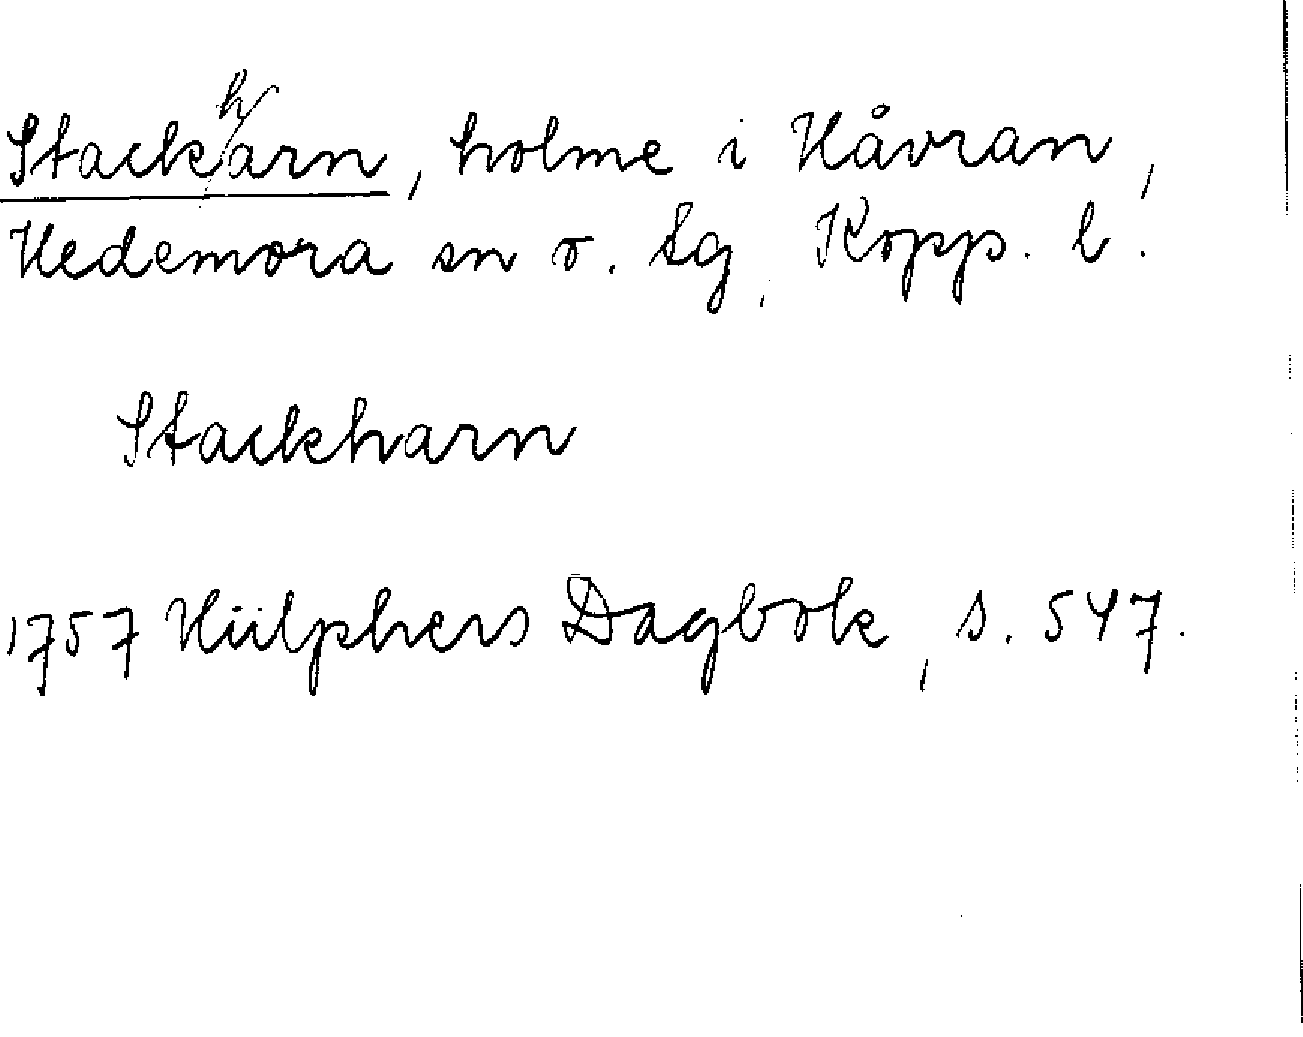 Stackharn, holme i Håvran,
Hedemora sn o. tg, Kopp. l.
Stackharn
1757 Hülphers Dagbok, s. 547.